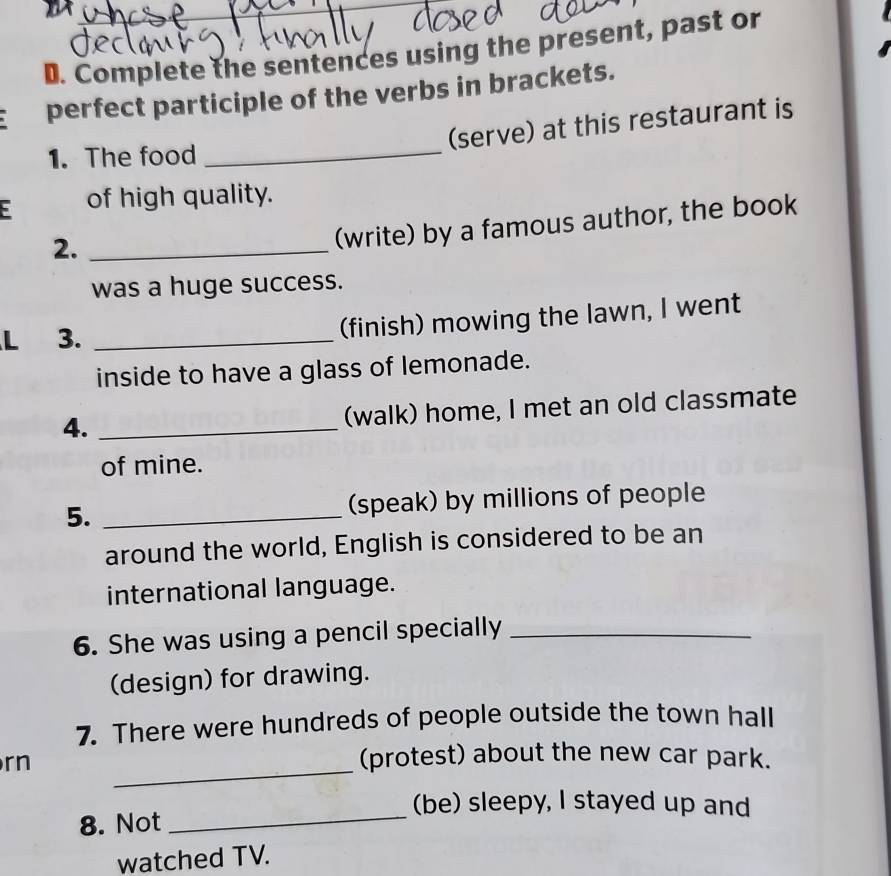 whose
declaring! finally closed
D. Complete the sentences using the present, past or
perfect participle of the verbs in brackets.
1. The food ________ (serve) at this restaurant is
of high quality.
2. ________ (write) by a famous author, the book
was a huge success.
3. ________ (finish) mowing the lawn, I went
inside to have a glass of lemonade.
4. ________ (walk) home, I met an old classmate
of mine.
5. ________ (speak) by millions of people
around the world, English is considered to be an
international language.
6. She was using a pencil specially ________
(design) for drawing.
7. There were hundreds of people outside the town hall
________ (protest) about the new car park.
8. Not ________ (be) sleepy, I stayed up and
watched TV.